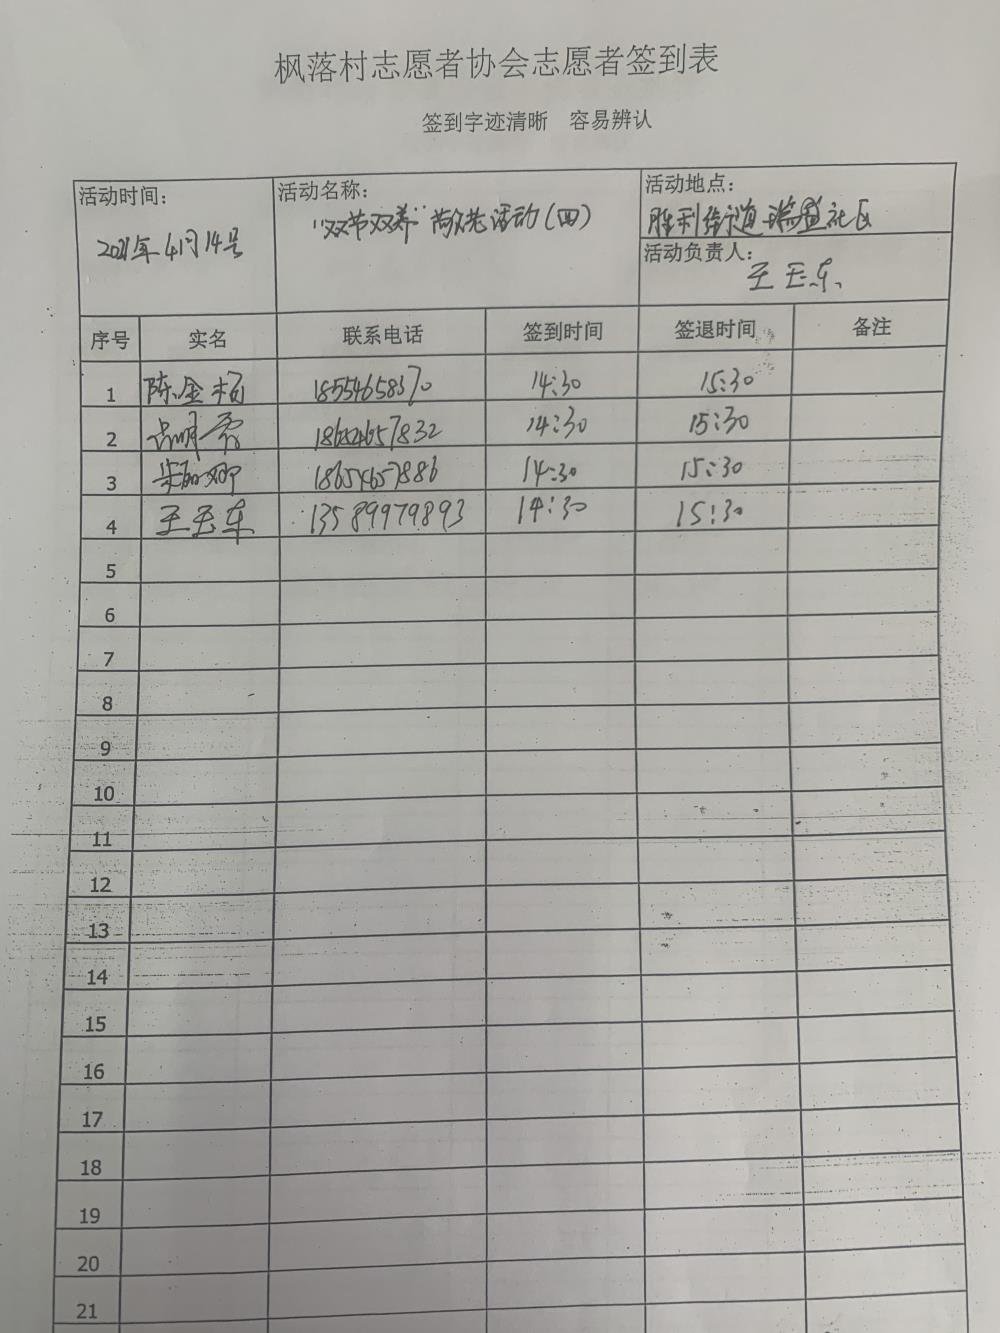 枫落村志愿者协会志愿者签到表
签到字迹清晰 容易辨认
活动时间: 活动名称: 活动地点:
2021年4月14号 "双节双养"敬老活动(四) 胜利街道瑞盛社区
活动负责人: 王玉东
序号 实名 联系电话 签到时间 签退时间 备注
1 陈金 18554658370 14:30 15:30
2 18654657832 14:30 15:30
3 18654657886 14:30 15:30
4 王玉东 13589979893 14:30 15:30
5
6
7
8
9
10
11
12
13
14
15
16
17
18
19
20
21